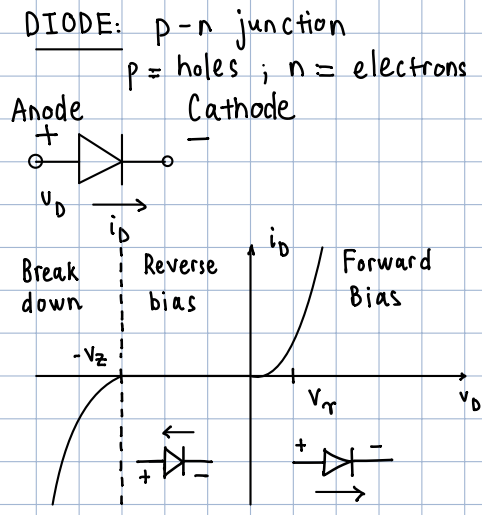 DIODE: p-n junction
p = holes ; n = electrons
Anode Cathode
+ −
v_D
i_D
i_D
Break
down
Reverse
bias
Forward
Bias
-V_Z
V_γ
v_D
+ −
+ −